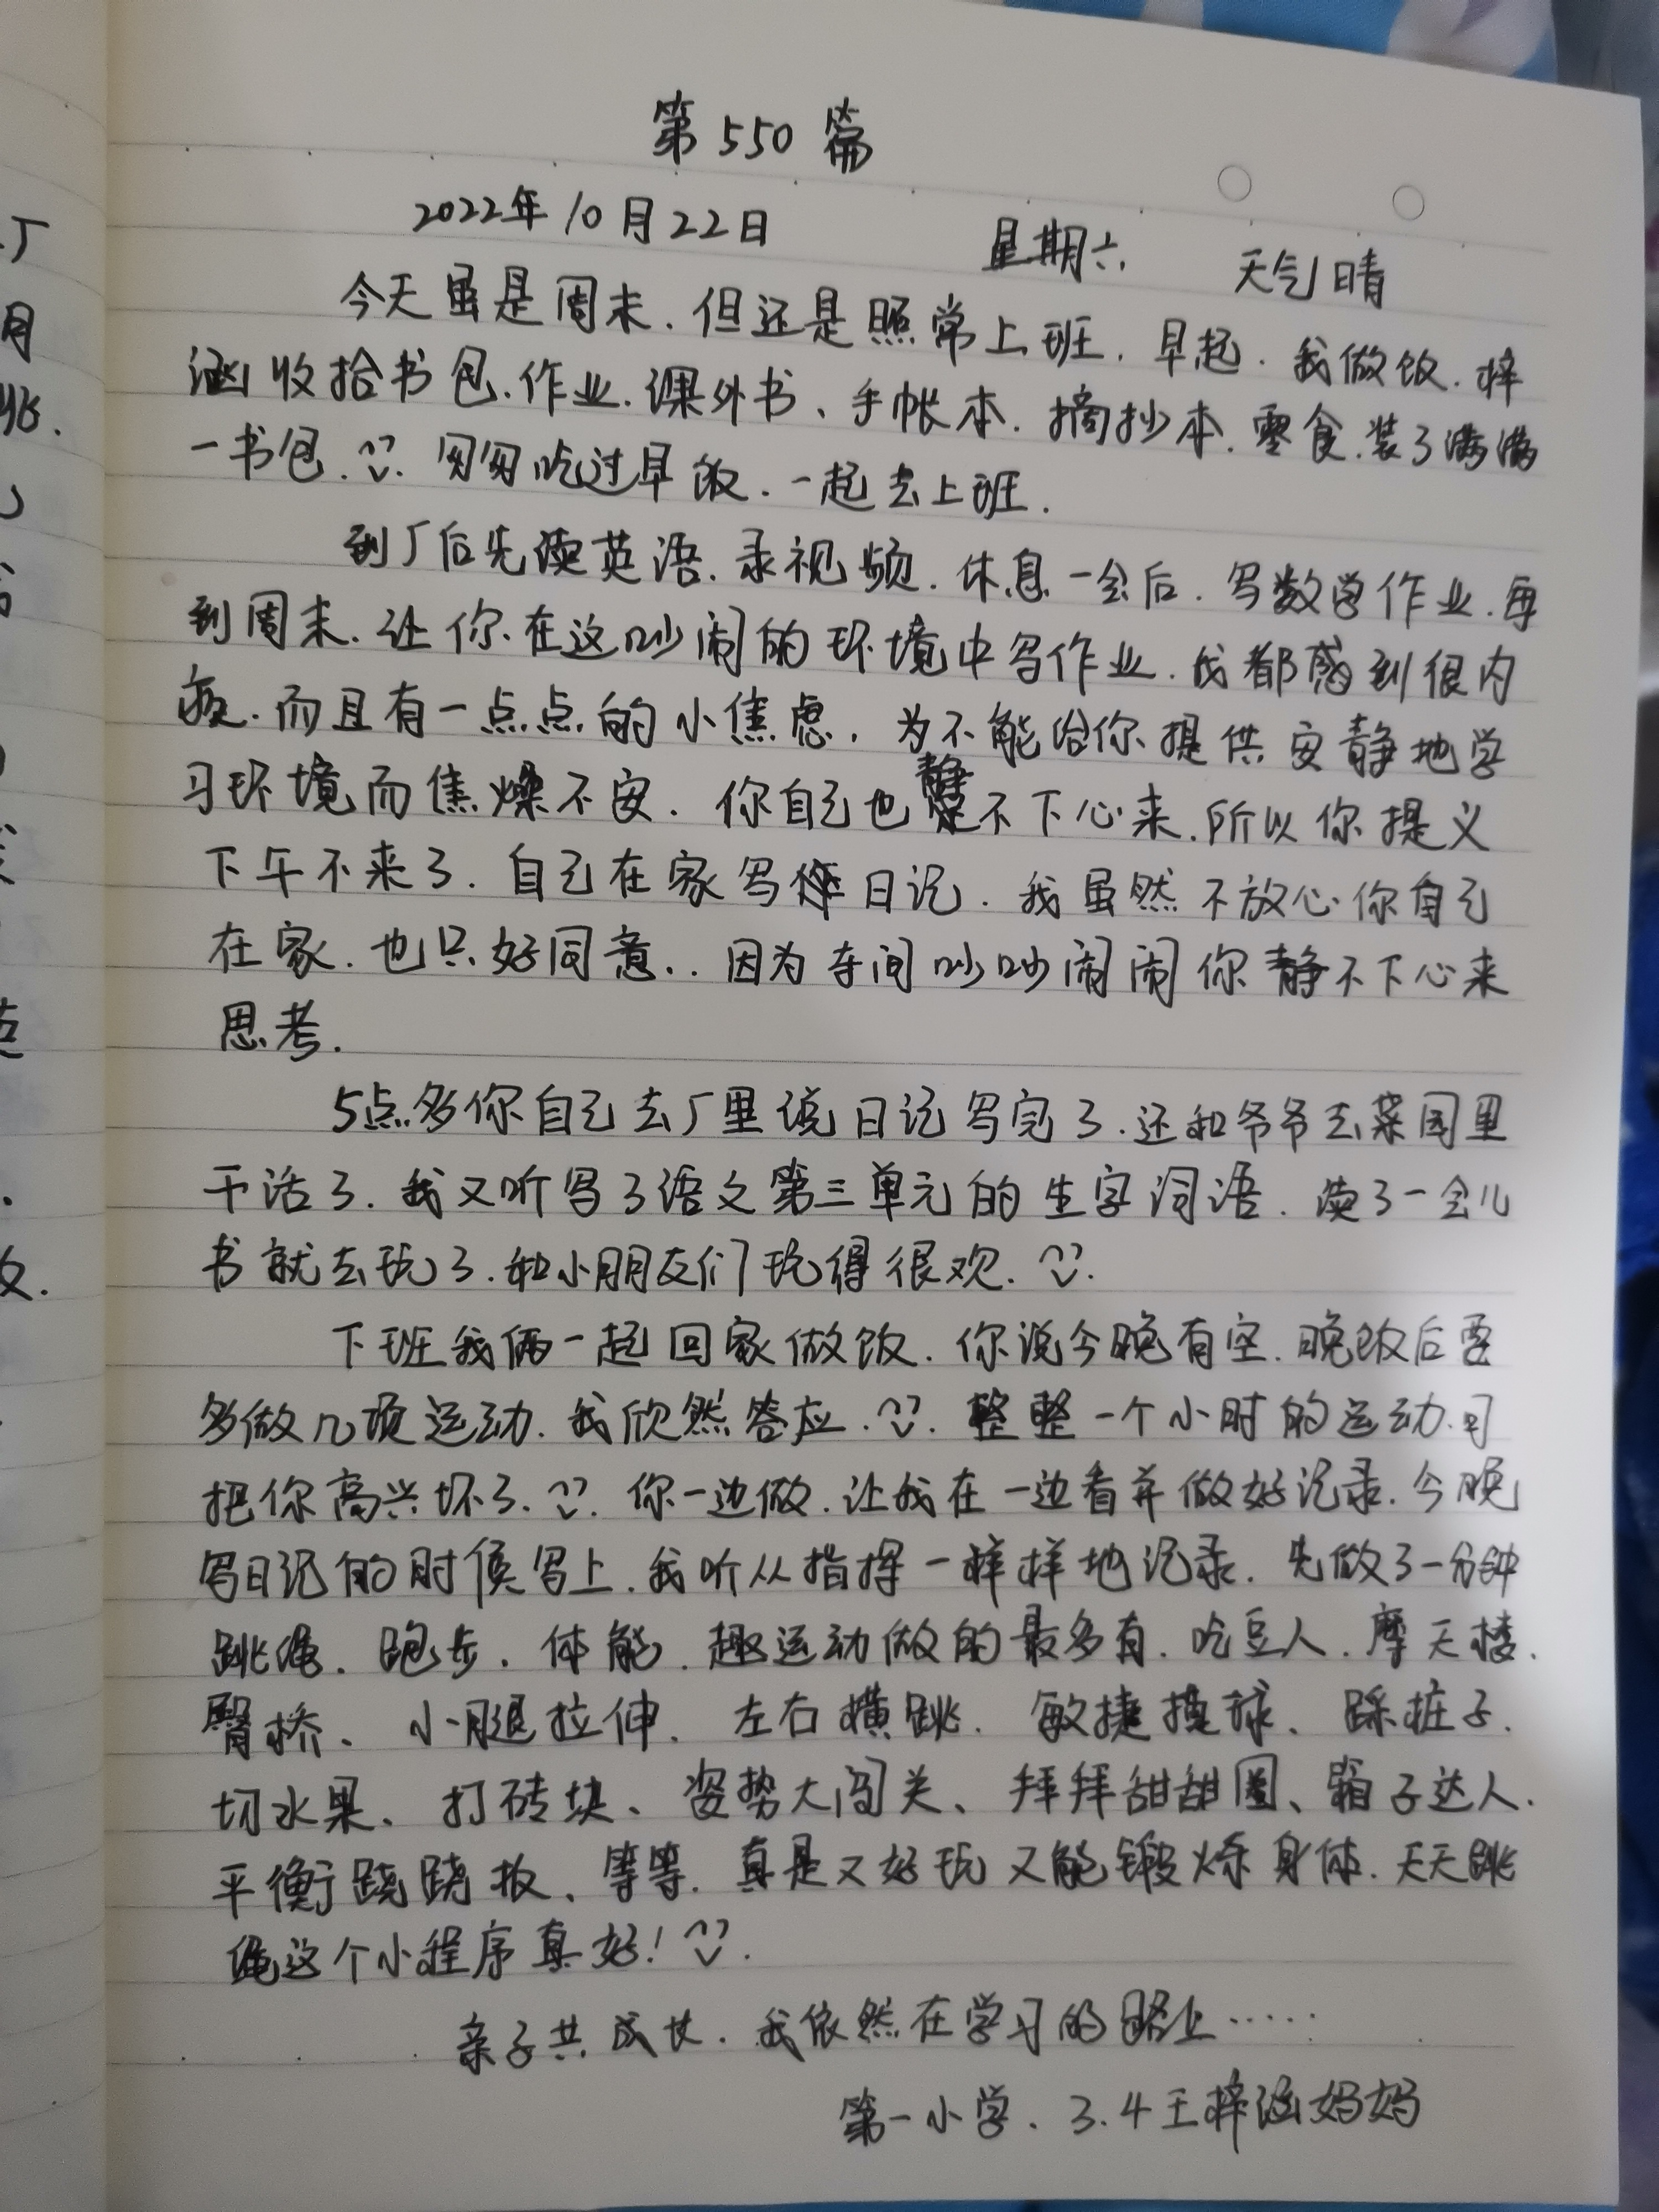 第550篇
2022年10月22日 星期六 天气晴
今天虽是周末.但还是照常上班.早起.我做饭.梓
涵收拾书包.作业.课外书、手帐本.摘抄本.零食.装了满满
一书包.匆匆吃过早饭.一起去上班.
到厂后先读英语.录视频.休息一会后.写数学作业.每
到周末.让你在这吵闹的环境中写作业.我都感到很内
疚.而且有一点点的小焦虑.为不能给你提供安静地学
习环境而焦燥不安.你自己也静不下心来.所以你提义
下午不来了.自己在家写日记.我虽然不放心你自己
在家.也只好同意..因为车间吵吵闹闹你静不下心来
思考.
5点多你自己去厂里说日记写完了.还和爷爷去菜园里
干活了.我又听写了语文第三单元的生字词语.读了一会儿
书就去玩了.和小朋友们玩得很欢.
下班我俩一起回家做饭.你说今晚有空.晚饭后要
多做几项运动.我欣然答应.整整一个小时的运动.可
把你高兴坏了.你一边做.让我在一边看并做好记录.今晚
写日记的时候写上.我听从指挥一样样地记录.先做了一分钟
跳绳.跑步.体能.趣运动做的最多有.吃豆人.摩天楼.
臀桥、小腿拉伸.左右横跳.敏捷摸球、踩桩子.
切水果、打砖块、姿势大闯关、拜拜甜甜圈、箱子达人.
平衡跷跷板、等等.真是又好玩又能锻炼身体.天天跳
绳这个小程序真好!
亲子共成长.我依然在学习的路上……
第一小学.3.4王梓涵妈妈